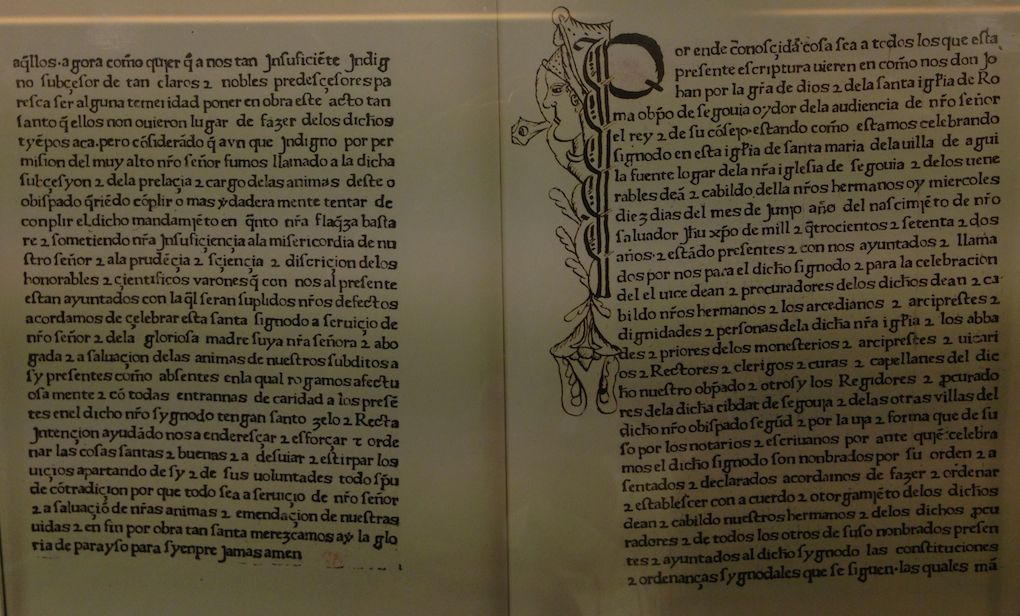 aq̃llos · agora com̃o quier q̃ a nos tan Jnsufiçiẽte Jndig
no subçesor de tan claros ⁊ nobles predesçesores pa
resca ser alguna temeridad poner en obra este acto tan
santo q̃ ellos non ouieron lugar de fazer delos dichos
tyẽpos aca. pero cõsiderãdo q̃ avn que Jndigno por per
mision del muy alto nr̃o señor fumos llamado a la dicha
subçesyon ⁊ dela prelaçia ⁊ cargo delas animas deste o
obispado q̃riẽdo cõplir o mas ṽdadera mente tentar de
conplir el dicho mandamjẽto en q̃nto nr̃a flaq̃za basta
re ⁊ sometiendo nr̃a Jnsufiçiençia ala misericordia de nu
stro señor ⁊ ala prudẽçia ⁊ sçiençia ⁊ discriçion delos
honorables ⁊ çientificos varones q̃ con nos al presente
estan ayuntados con la q̃l seran suplidos nr̃os defectos
acordamos de çelebrar esta santa signodo a seruiçio de
nr̃o señor ⁊ dela gloriosa madre suya nr̃a señora ⁊ abo
gada ⁊ a saluaçion delas animas de nuestros subditos a
sy presentes com̃o absentes enla qual rogamos afectu
osa mente ⁊ cõ todas entrannas de caridad a los presẽ
tes enel dicho nr̃o sygnodo tengan santo zelo ⁊ Recta
Jntençion ayudãdo nos a endereſçar ⁊ esforçar ⁊ orde
nar las cosas santas ⁊ buenas ⁊ a desuiar ⁊ estirpar los
uiçios apartando de sy ⁊ de sus uoluntades todo sp̃u
de cõtradiçion por que todo sea a seruiçio de nr̃o señor
⁊ a saluaçiõ de nr̃as animas ⁊ emendaçion de nuestras
uidas ⁊ en fin por obra tan santa merezcamos aṽ la glo
ria de parayso para syenpre jamas amen
Por ende c̃onosçida cosa sea a todos los que esta
presente escriptura uieren en com̃o nos don Jo
han por la gr̃a de dios ⁊ dela santa igl̃ia de Ro
ma obp̃o de segouia oydor dela audiencia de nr̃o señor
el rey ⁊ de su cõsejo · estando com̃o estamos celebrando
signodo en esta igl̃ia de santa maria dela uilla de agui
la fuente logar dela nr̃a iglesia de segouia ⁊ delos uene
rables deã ⁊ cabildo della nr̃os hermanos oy miercoles
diez dias del mes de junjo año del nascimjẽto de nr̃o
saluador jhũ xp̃o de mill ⁊ q̃trocientos ⁊ setenta ⁊ dos
años · ⁊ estãdo presentes ⁊ con nos ayuntados ⁊ llama
dos por nos para el dicho signodo ⁊ para la celebracion
del el uice dean ⁊ procuradores delos dichos dean ⁊ ca
bildo nr̃os hermanos ⁊ los arcedianos ⁊ arciprestes ⁊
dignidades ⁊ personas dela dicha nr̃a igl̃ia ⁊ los abba
des ⁊ priores delos monesterios ⁊ arciprestes ⁊ uicari
os ⁊ Rectores ⁊ clerigos ⁊ curas ⁊ capellanes del dic
ho nuestro obp̃ado ⁊ otrosy los Regidores ⁊ ꝓcurado
res dela dicha cibdat de segouja ⁊ delas otras villas del
dicho nr̃o obispado segũd ⁊ por la uja ⁊ forma que de su
so por los notarios ⁊ escriuanos por ante quiẽ celebra
mos el dicho signodo son nonbrados por su orden ⁊ a
sentados ⁊ declarados acordamos de fazer ⁊ ordenar
⁊ establescer con a cuerdo ⁊ otorgamjẽto delos dichos
dean ⁊ cabildo nuestros hermanos ⁊ delos dichos ꝓcu
radores ⁊ de todos los otros de suso nonbrados presen
tes ⁊ ayuntados al dicho sygnodo las constituciones
⁊ ordenanças sygnodales que se siguen · las quales mã